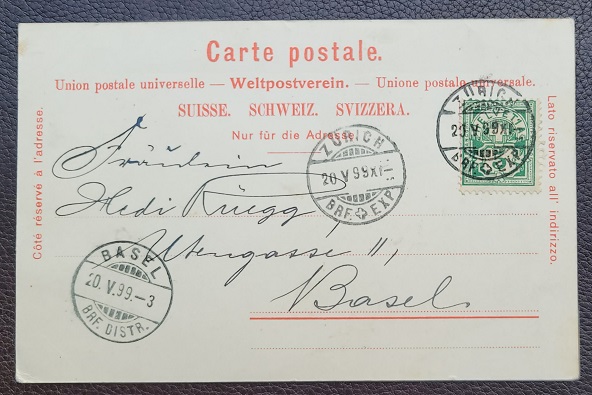 Carte postale.
Union postale universelle. — Weltpostverein. — Unione postale universale.
SUISSE. SCHWEIZ. SVIZZERA.
Nur für die Adresse.
Côté réservé à l'adresse.
Lato riservato all' indirizzo.
ZÜRICH
20.V.99.XI-
BRF. EXP.
HELVETIA
ZÜRICH
20.V.99.XI-
BRF. EXP.
Fräulein
Hedi Rüegg,
Utengasse 11,
Basel
BASEL
20.V.99.-3
BRF. DISTR.